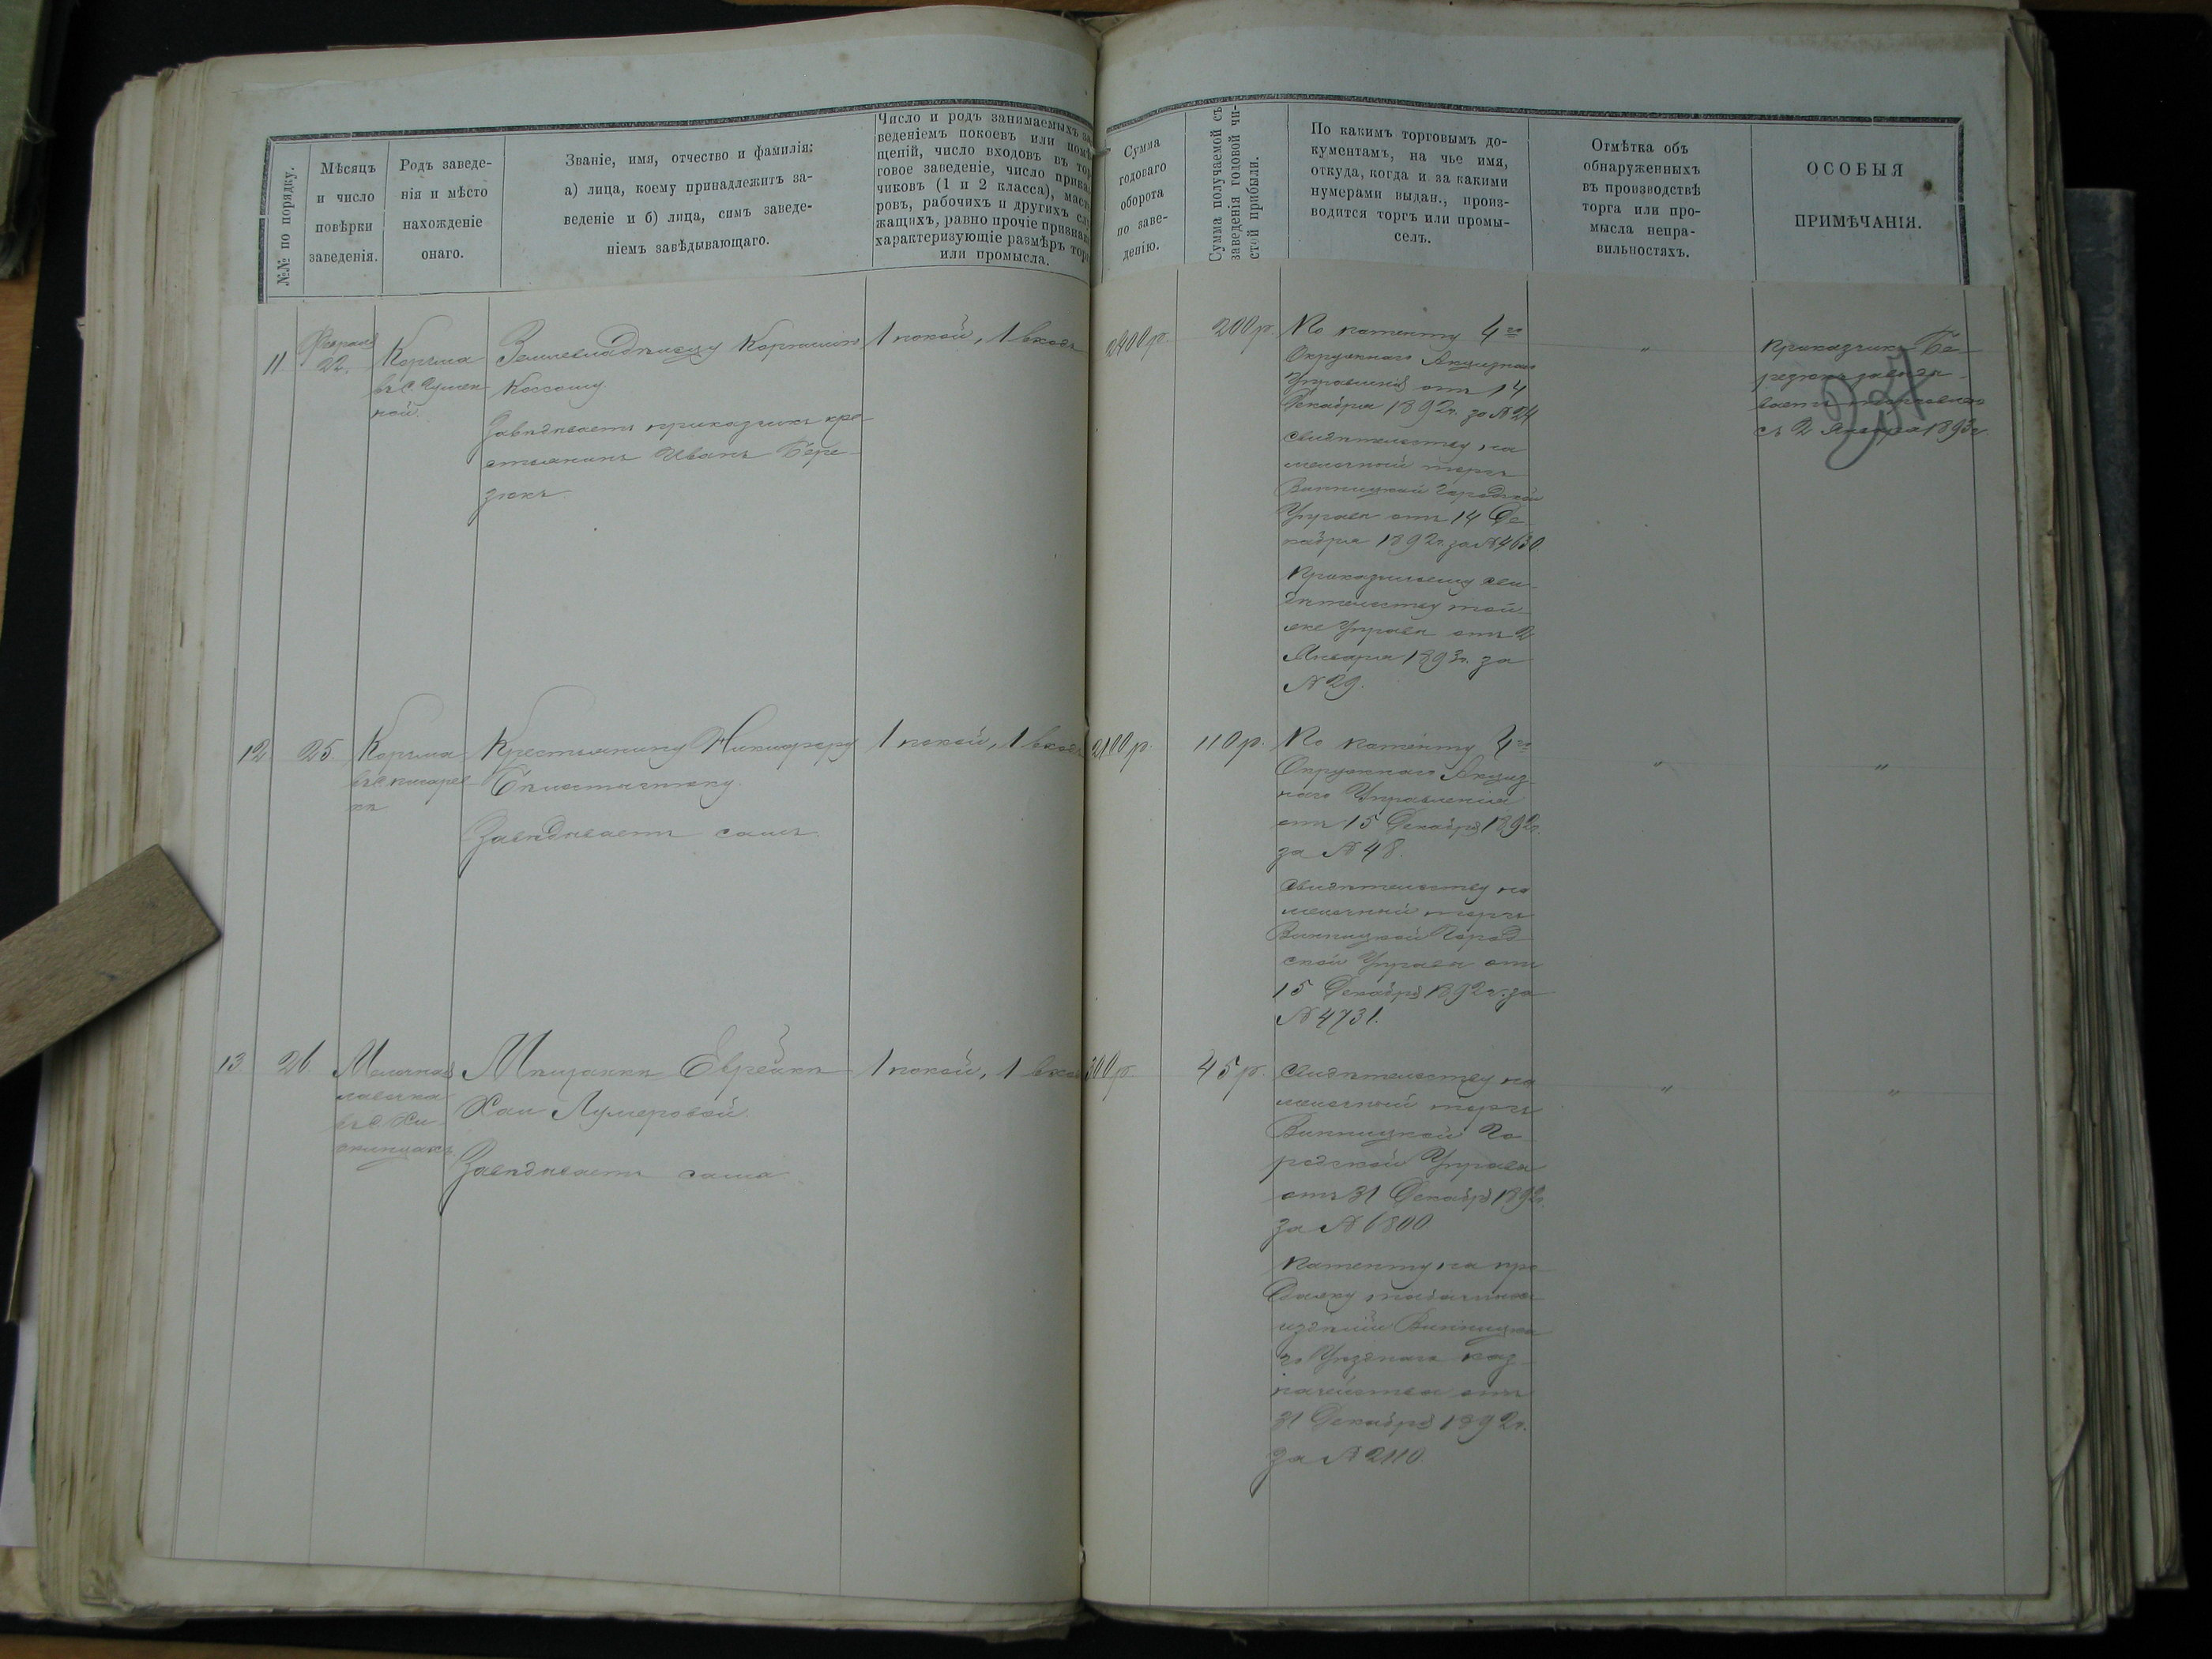 №№ по порядку.
Мѣсяцъ
и число
повѣрки
заведенія.
Родъ заведе-
нія и мѣсто
нахожденіе
онаго.
Званіе, имя, отчество и фамилія:
а) лица, коему принадлежитъ за-
веденіе и б) лица, симъ заведе-
ніемъ завѣдывающаго.
Число и родъ занимаемыхъ за
веденіемъ покоевъ или помѣ
щеній, число входовъ въ тор
говое заведеніе, число прика
чиковъ (1 и 2 класса), масте
ровъ, рабочихъ и другихъ слу
жащихъ, равно прочіе признаки
характеризующіе размѣръ торг
или промысла.
Сумма
годоваго
оборота
по заве-
денію.
Сумма получаемой съ
заведенія годовой чи-
стой прибыли.
По какимъ торговымъ до-
кументамъ, на чье имя,
откуда, когда и за какими
нумерами выдан., произ-
водится торгъ или промы-
селъ.
Отмѣтка объ
обнаруженныхъ
въ производствѣ
торга или про-
мысла непра-
вильностяхъ.
ОСОБЫЯ
ПРИМѢЧАНІЯ.
11.
Февраля
22.
Корчма
въ с.
ной.
Землевладѣльцу
Коссаму
Завѣдываетъ приказчикъ кре-
стьянинъ Иванъ Бере-
зюкъ
1 покой, 1 входъ
2400 р.
200 р.
По патенту 4го
Окружнаго Акцизнаго
Управленія отъ 14
Декабря 1892г. за № 24
Свидѣтельству на
мелочный торгъ
Винницкой Городской
Управы отъ 14 Де-
кабря 1892г. за № 4630.
Приказчичьему сви-
дѣтельству той
же Управы отъ 2
Января 1893г. за
№ 29.
"
Приказчикъ Бе-
резюкъ завѣды-
ваетъ торговлею
съ 2 Января 1893г.
12.
25.
Корчма
въ с. Писарев-
кѣ
Крестьянину Никифору
Завѣдываетъ самъ.
1 покой, 1 входъ
2100 р.
110 р.
По патенту 4го
Окружнаго Акциз-
наго Управленія
отъ 15 Декабря 1892г.
за № 48.
Свидѣтельству на
мелочный торгъ
Винницкой Город-
ской Управы отъ
15 Декабря 1892г. за
№ 4731.
"
"
13.
26.
Мелочная
лавочка
въ с. Хи-
жинцахъ.
Мѣщанкѣ Еврейкѣ
Хаи
Завѣдываетъ сама.
1 покой, 1 входъ
300 р.
45 р.
Свидѣтельству на
мелочный торгъ
Винницкой Го-
родской Управы
отъ 31 Декабря 1892г.
за № 6800.
Патенту на про-
дажу табачныхъ
издѣлій Винницка-
го Уѣзднаго Каз-
начейства отъ
31 Декабря 1892г.
за № 2110
"
"